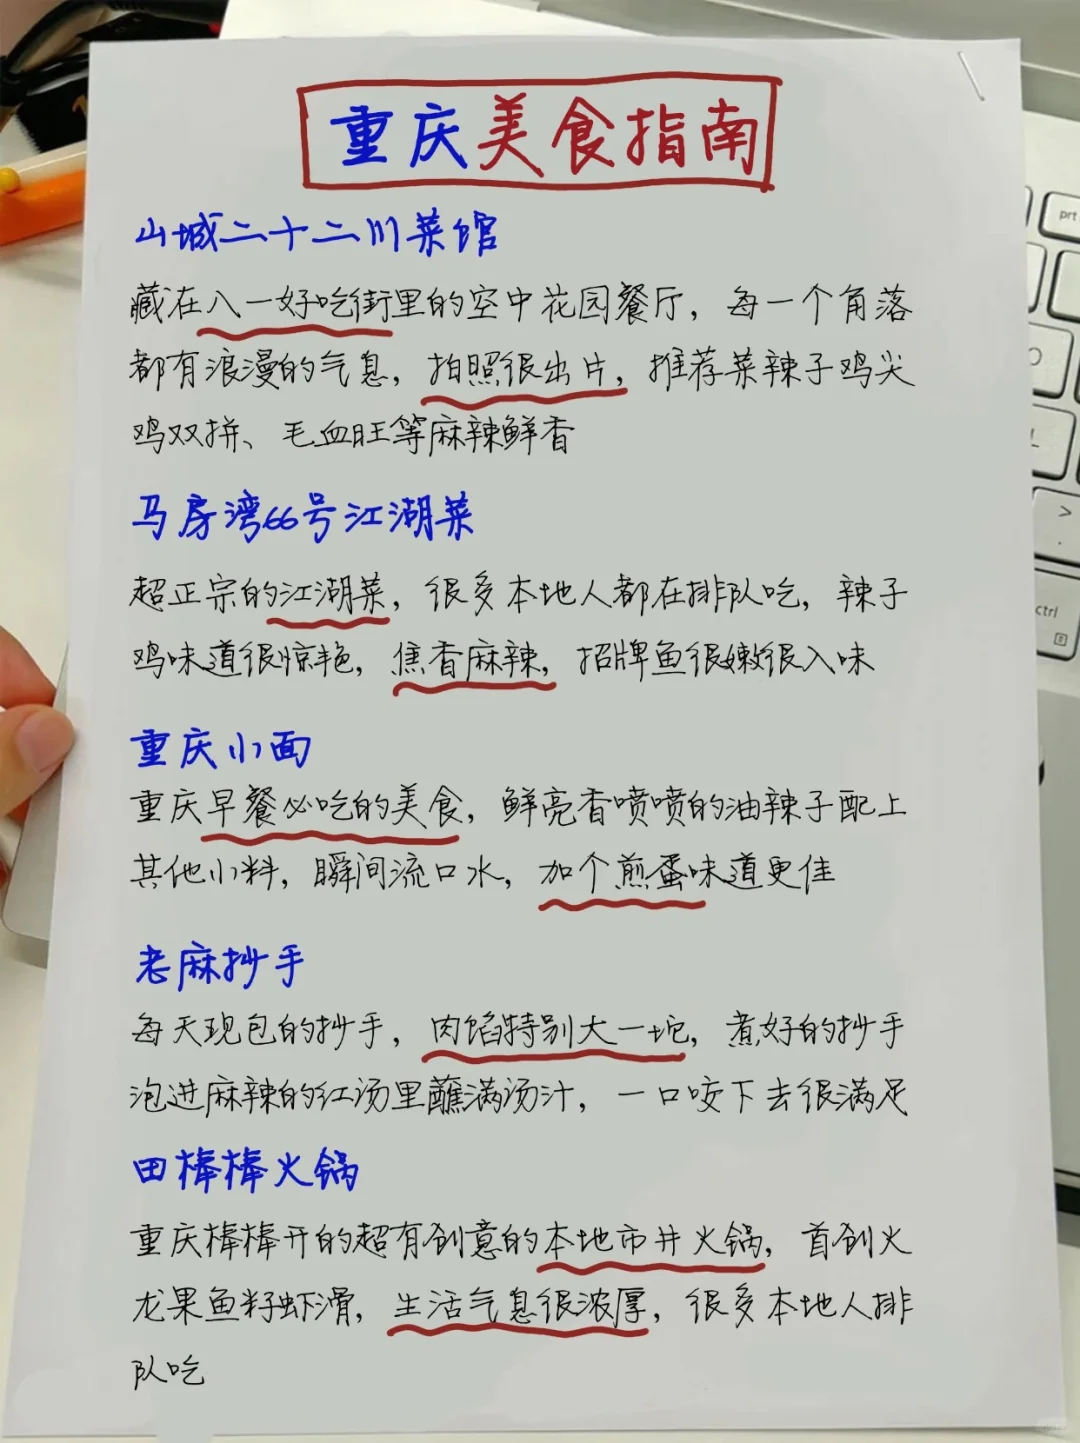 重庆美食指南
山城二十二川菜馆
藏在八一好吃街里的空中花园餐厅，每一个角落
都有浪漫的气息，拍照很出片，推荐菜辣子鸡尖
鸡双拼、毛血旺等麻辣鲜香
马房湾66号江湖菜
超正宗的江湖菜，很多本地人都在排队吃，辣子
鸡味道很惊艳，焦香麻辣，招牌鱼很嫩很入味
重庆小面
重庆早餐必吃的美食，鲜亮香喷喷的油辣子配上
其他小料，瞬间流口水，加个煎蛋味道更佳
老麻抄手
每天现包的抄手，肉馅特别大一坨，煮好的抄手
泡进麻辣的红汤里蘸满汤汁，一口咬下去很满足
田棒棒火锅
重庆棒棒开的超有创意的本地市井火锅，首创火
龙果鱼籽虾滑，生活气息很浓厚，很多本地人排
队吃
prt
ctrl